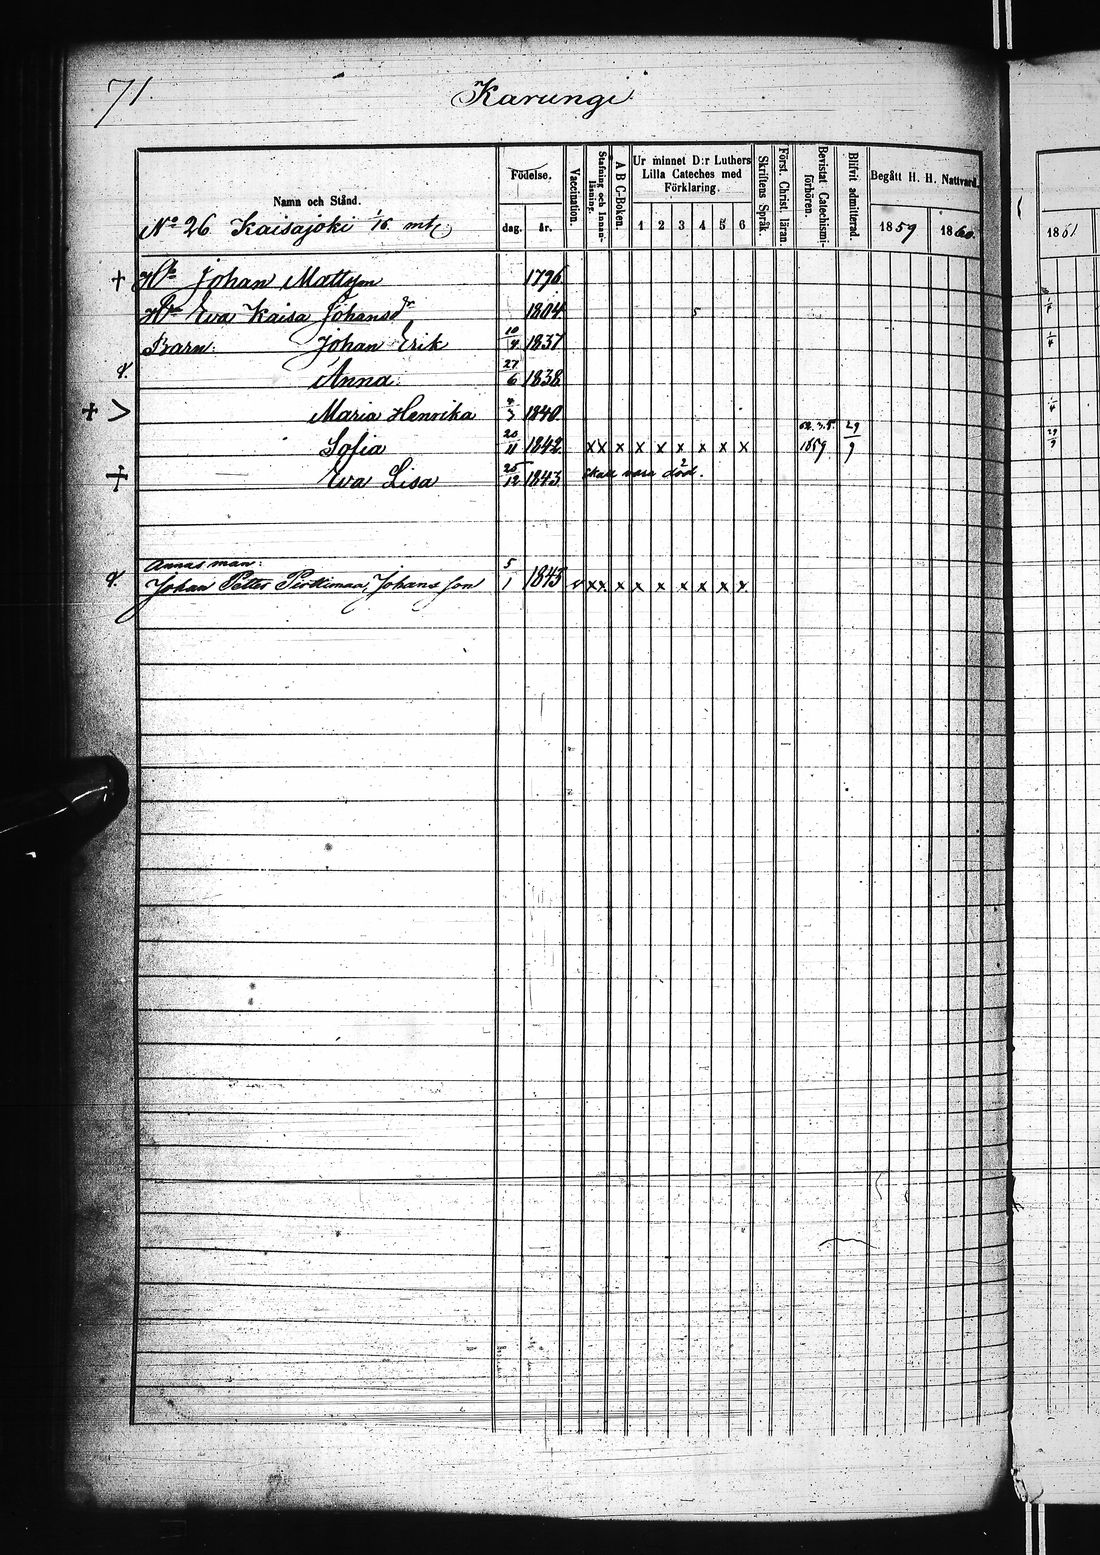 71.
Karungi.
Namn och Stånd.
Födelse.
dag. år.
Vaccination.
Stafning och Innanläsning.
A B C-Boken.
Ur minnet D:r Luthers
Lilla Cateches med
Förklaring.
1 2 3 4 5 6
Skriftens Språk.
Först. Christ. läran.
Bevistat Catechismi-förhören.
Blifvit admitterad.
Begått H. H. Nattvard.
1859 1860. 1861
No 26 Kaisajoki 1/16 mtl
+ Johan Mattsson 1796.
Eva Kaisa Johansdr 1804
Barn: Johan Erik 10/4 1837
Anna. 27/6 1838
+ > Maria Henrika 4/3 1840
Sofia 20/11 1842 x x x x x x x x x 1859 29/9 29/9
+ Eva Lisa 25/12 1843 skall vara död.
Annas man:
Johan Petter Johansson 5/1 1845 v x x. x x x x x x x.